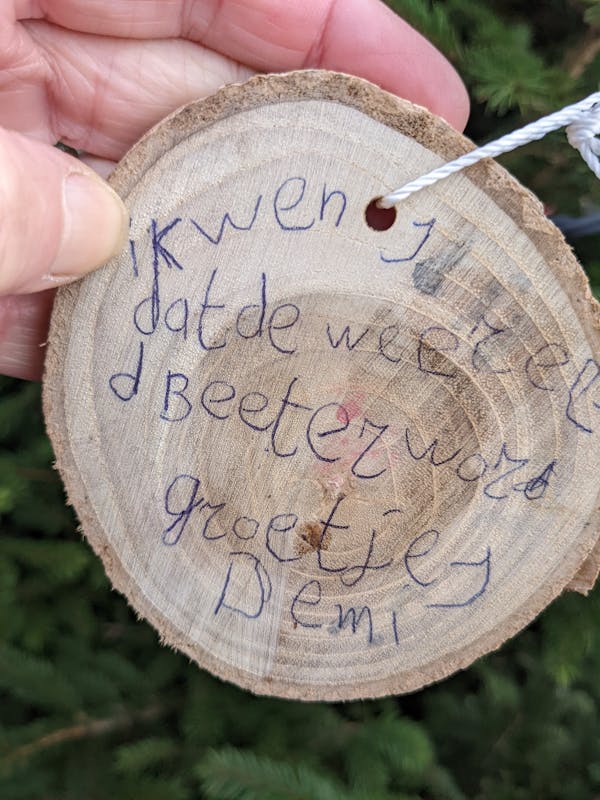 ik wen s
dat de weerel
d Beeter word
groetjes
Demi